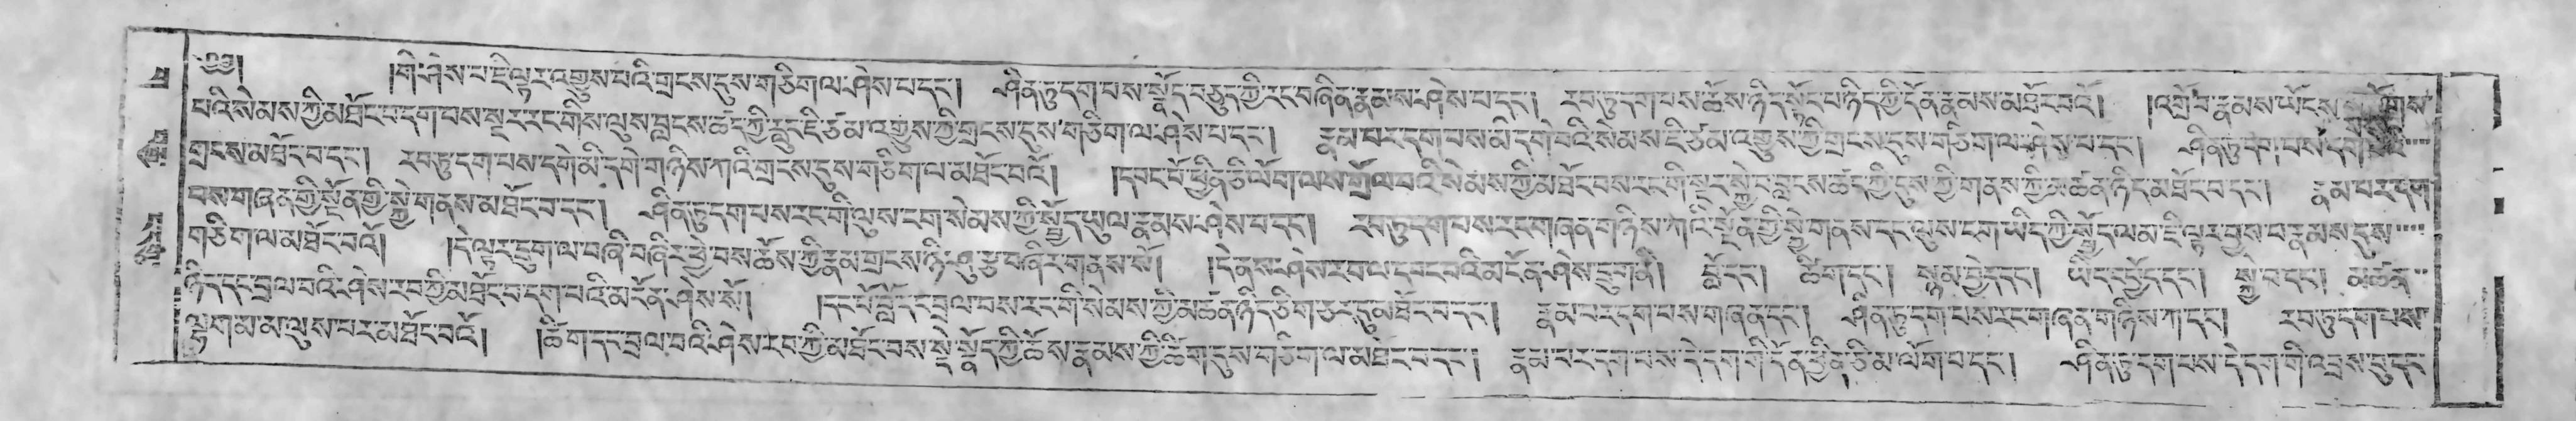 ༄༅། །གི་ཤེས་པ་ཇི་ལྟར་འགྱུས་པའི་གྲངས་དུས་གཅིག་ལ་ཤེས་པ་དང་། ཤིན་ཏུ་དག་པས་སྣོད་བཅུད་ཀྱི་རང་བཞིན་རྣམས་ཤེས་པ་དང་། རབ་ཏུ་དག་པས་ཆོས་ཉིད་སྟོང་པ་ཉིད་ཀྱི་དོན་རྣམས་མཐོང་བའོ། །འགྲོ་བ་རྣམས་ཡོངས་
པའི་སེམས་ཀྱི་མཐོང་བ་དག་པས་སྔར་རང་གིས་ལུས་བླངས་ཚད་ཀྱི་རླུང་ཇི་ཙམ་འགྱུས་ཀྱི་གྲངས་དུས་གཅིག་ལ་ཤེས་པ་དང་། རྣམ་པར་དག་པས་མི་དགེ་བའི་སེམས་ཇི་ཙམ་འགྱུས་ཀྱི་གྲངས་དུས་གཅིག་ལ་ཤེས་པ་དང་། ཤིན་ཏུ་དག་པས་དགེ་བའི
གྲངས་མཐོང་བ་དང་། རབ་ཏུ་དག་པས་དགེ་མི་དགེ་གཉིས་ཀའི་གྲངས་དུས་གཅིག་ལ་མཐོང་བའོ། །དབང་པོ་ཕྱིན་ཅི་ལོག་ལས་གྲོལ་བའི་སེམས་ཀྱི་མཐོང་བས་རང་གི་སྔར་སྐྱེ་བ་བླངས་ཚད་ཀྱི་དུས་ཀྱི་གནས་ཀྱི་མཚན་ཉིད་མཐོང་བ་དང་། རྣམ་པར་དག
པས་གཞན་གྱི་སྔོན་གྱི་སྐྱེ་གནས་མཐོང་བ་དང་། ཤིན་ཏུ་དག་པས་རང་གི་ལུས་ངག་སེམས་ཀྱི་སྤྱོད་ཡུལ་རྣམས་ཤེས་པ་དང་། རབ་ཏུ་དག་པས་རང་གཞན་གཉིས་ཀའི་སྔོན་གྱི་སྐྱེ་གནས་དང་ལུས་ངག་ཡིད་ཀྱི་སྤྱོད་ལམ་ཇི་ལྟར་བྱས་པ་རྣམས་དུས
གཅིག་ལ་མཐོང་བའོ། །དེ་ལྟར་དྲུག་ལ་བཞི་བཞིར་ཕྱེ་བས་ཆོས་ཀྱི་རྣམ་གྲངས་ཉི་ཤུ་རྩ་བཞིར་གནས་སོ། །དེ་ནས་ཤེས་རབ་ལ་དབང་བའི་མངོན་ཤེས་དྲུག་ནི། བློ་དང་། ཚིག་དང་། སྒྲ་དབྱེ་དང་། ཡིད་དཔྱོད་དང་། སྐྱེ་བ་དང་། མཚན
ཉིད་དང་བྲལ་བའི་ཤེས་རབ་ཀྱི་མཐོང་བ་དག་པའི་མངོན་ཤེས་སོ། །དང་པོ་བློ་དང་བྲལ་བས་རང་གི་སེམས་ཀྱི་མཚན་ཉིད་ཅིག་ཅར་དུ་མཐོང་བ་དང་། རྣམ་པར་དག་པས་གཞན་དང་། ཤིན་ཏུ་དག་པས་རང་གཞན་གཉིས་ཀ་དང་། རབ་ཏུ་དག་པས
ལྷག་མ་མ་ལུས་པར་མཐོང་བའོ། །ཚིག་དང་བྲལ་བའི་ཤེས་རབ་ཀྱི་མཐོང་བས་སྡེ་སྣོད་ཀྱི་ཆོས་རྣམས་ཀྱི་ཚིག་དུས་གཅིག་ལ་མཐོང་བ་དང་། རྣམ་པར་དག་པས་དེ་དག་གི་དོན་ཕྱིན་ཅི་མ་ལོག་པ་དང་། ཤིན་ཏུ་དག་པས་དེ་དག་གི་འབྲས་བུ་དང